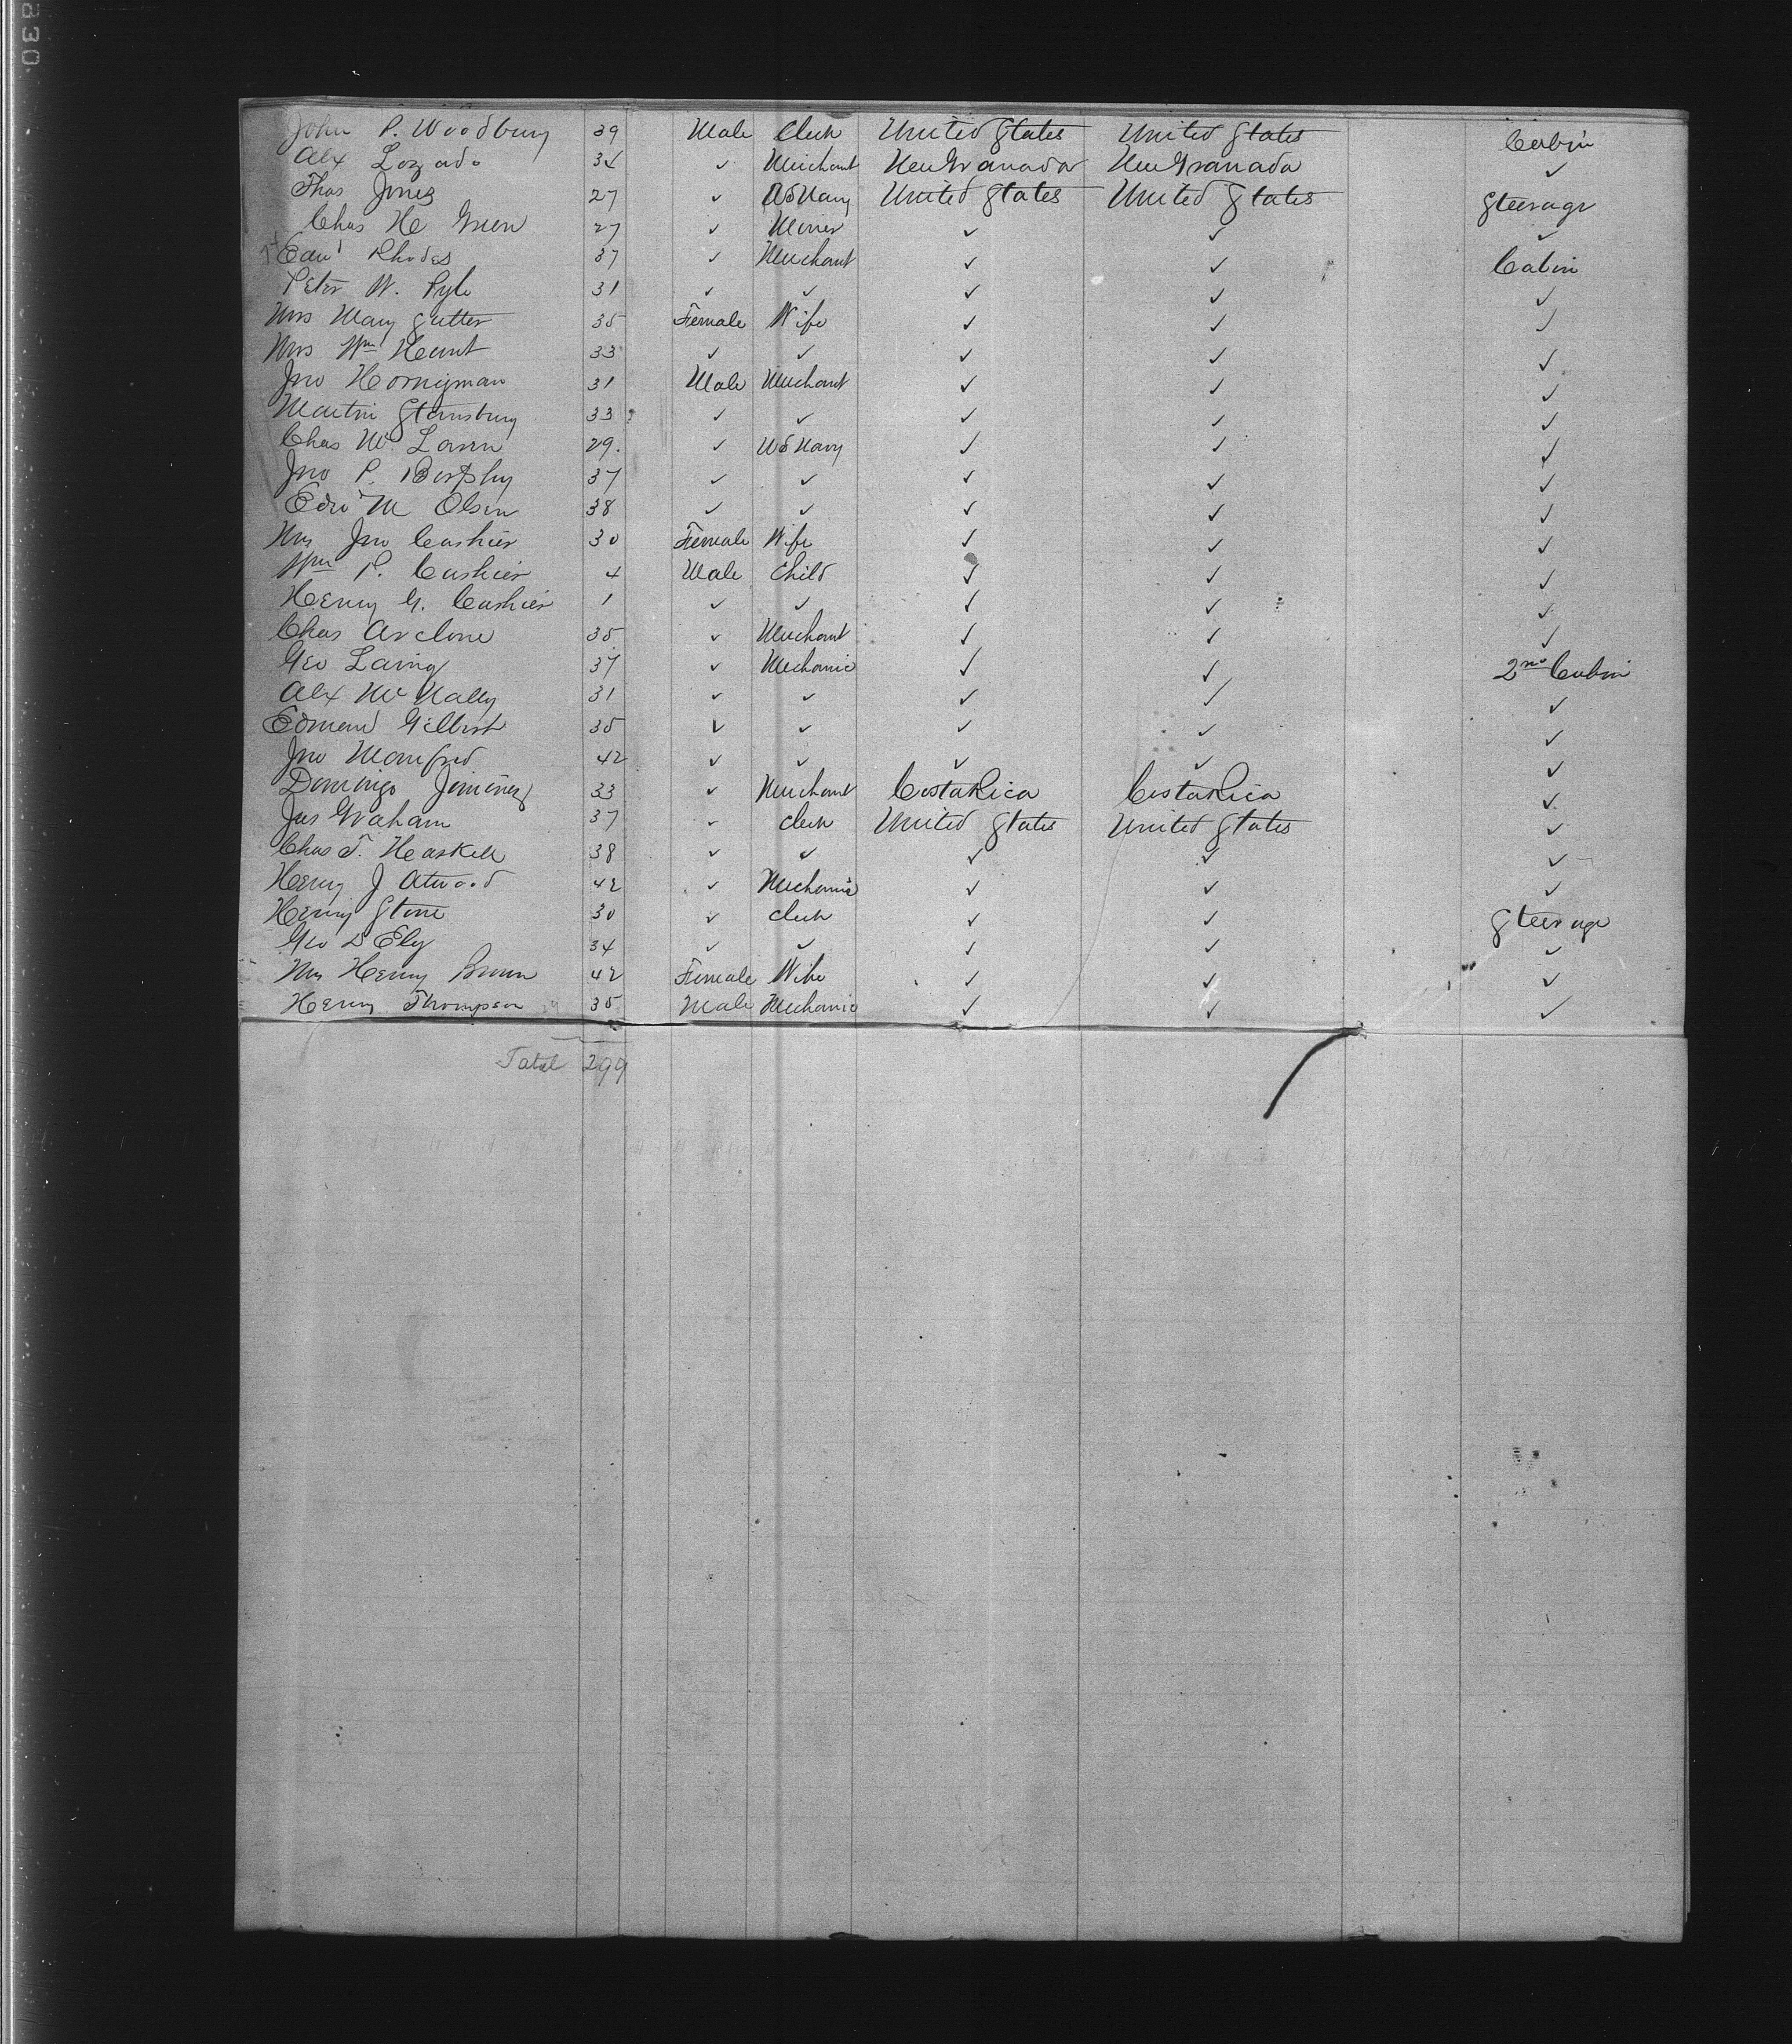 330
John P. Woodbury 39 Male Clerk United States United States Cabin
Alx Lozado 34 ✓ Merchant New Granada New Granada ✓
Thos Jones 27 ✓ US Navy United States United States Steerage
Chas H Green 27 ✓ Miner ✓ ✓ ✓
Edwd Rhodes 37 ✓ Merchant ✓ ✓ Cabin
Peter W. Pyle 31 ✓ ✓ ✓ ✓ ✓
Mrs Mary Sutter 35 Female Wife ✓ ✓ ✓
Mrs Wm Hunt 33 ✓ ✓ ✓ ✓ ✓
Jno Hornyman 31 Male Merchant ✓ ✓ ✓
Martin Stansbury 33 ✓ ✓ ✓ ✓ ✓
Chas Mc 29. ✓ US Navy ✓ ✓ ✓
Jno P. 37 ✓ ✓ ✓ ✓ ✓
Edw M Olsen 38 ✓ ✓ ✓ ✓ ✓
Mrs Jno Cashier 30 Female Wife ✓ ✓ ✓
Wm P. Cashier 4 Male Child ✓ ✓ ✓
Henry G. Cashier 1 ✓ ✓ ✓ ✓ ✓
Chas 35 ✓ Merchant ✓ ✓ ✓
Geo Laing 37 ✓ Mechanic ✓ ✓ 2nd Cabin
Alx McNally 31 ✓ ✓ ✓ ✓ ✓
Edmund 35 ✓ ✓ ✓ ✓ ✓
Jno Manfred 42 ✓ ✓ ✓ ✓ ✓
Domingo Jiminez 33 ✓ Merchant Costa Rica Costa Rica ✓
Jas Graham 37 ✓ Clerk United States United States ✓
Chas T. Haskell 38 ✓ ✓ ✓ ✓ ✓
Henry J Atwood 42 ✓ Mechanic ✓ ✓ ✓
Henry Stone 30 ✓ Clerk ✓ ✓ Steerage
Geo D Ely 34 ✓ ✓ ✓ ✓ ✓
Mrs Henry Brown 42 Female Wife ✓ ✓ ✓
Henry Thompson 29 35 Male Mechanic ✓ ✓ ✓
Total 299